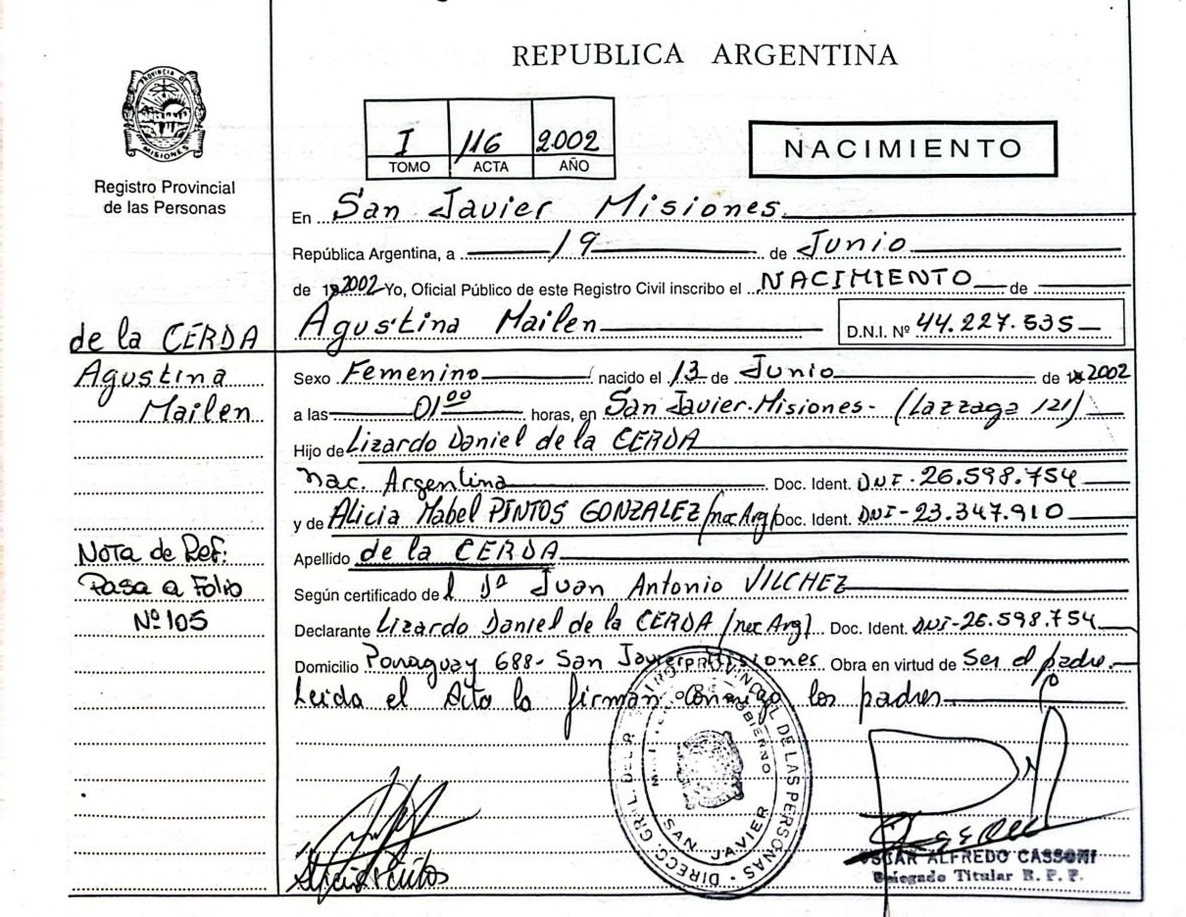 REPUBLICA ARGENTINA
PROVINCIA DE
MISIONES
I 116 2002
TOMO ACTA AÑO
NACIMIENTO
Registro Provincial
de las Personas
En San Javier Misiones
República Argentina, a 19 de Junio
de 2002 Yo, Oficial Público de este Registro Civil inscribo el NACIMIENTO de
Agustina Mailen D.N.I. Nº 44.227.535
de la CERDA
Agustina
Mailen
Sexo Femenino nacido el 13 de Junio de 2002
a las 01⁰⁰ horas, en San Javier-Misiones- (Lazzaga 121)
Hijo de Lizardo Daniel de la CERDA
nac. Argentina Doc. Ident. DNI-26.598.754
y de Alicia Mabel PINTOS GONZALEZ (nac Arg) Doc. Ident. DNI-23.347.910
Apellido de la CERDA
Nota de Ref:
Pasa a Folio
Nº 105
Según certificado de Juan Antonio VILCHEZ
Declarante Lizardo Daniel de la CERDA (nac Arg) Doc. Ident. DNI-26.598.754
Domicilio Paraguay 688- San Javier Misiones Obra en virtud de Ser el padre.
Leida el Acta la firman conmigo los padres
SAN JAVIER
OSCAR ALFREDO CASSONI
Delegado Titular R. P. P.